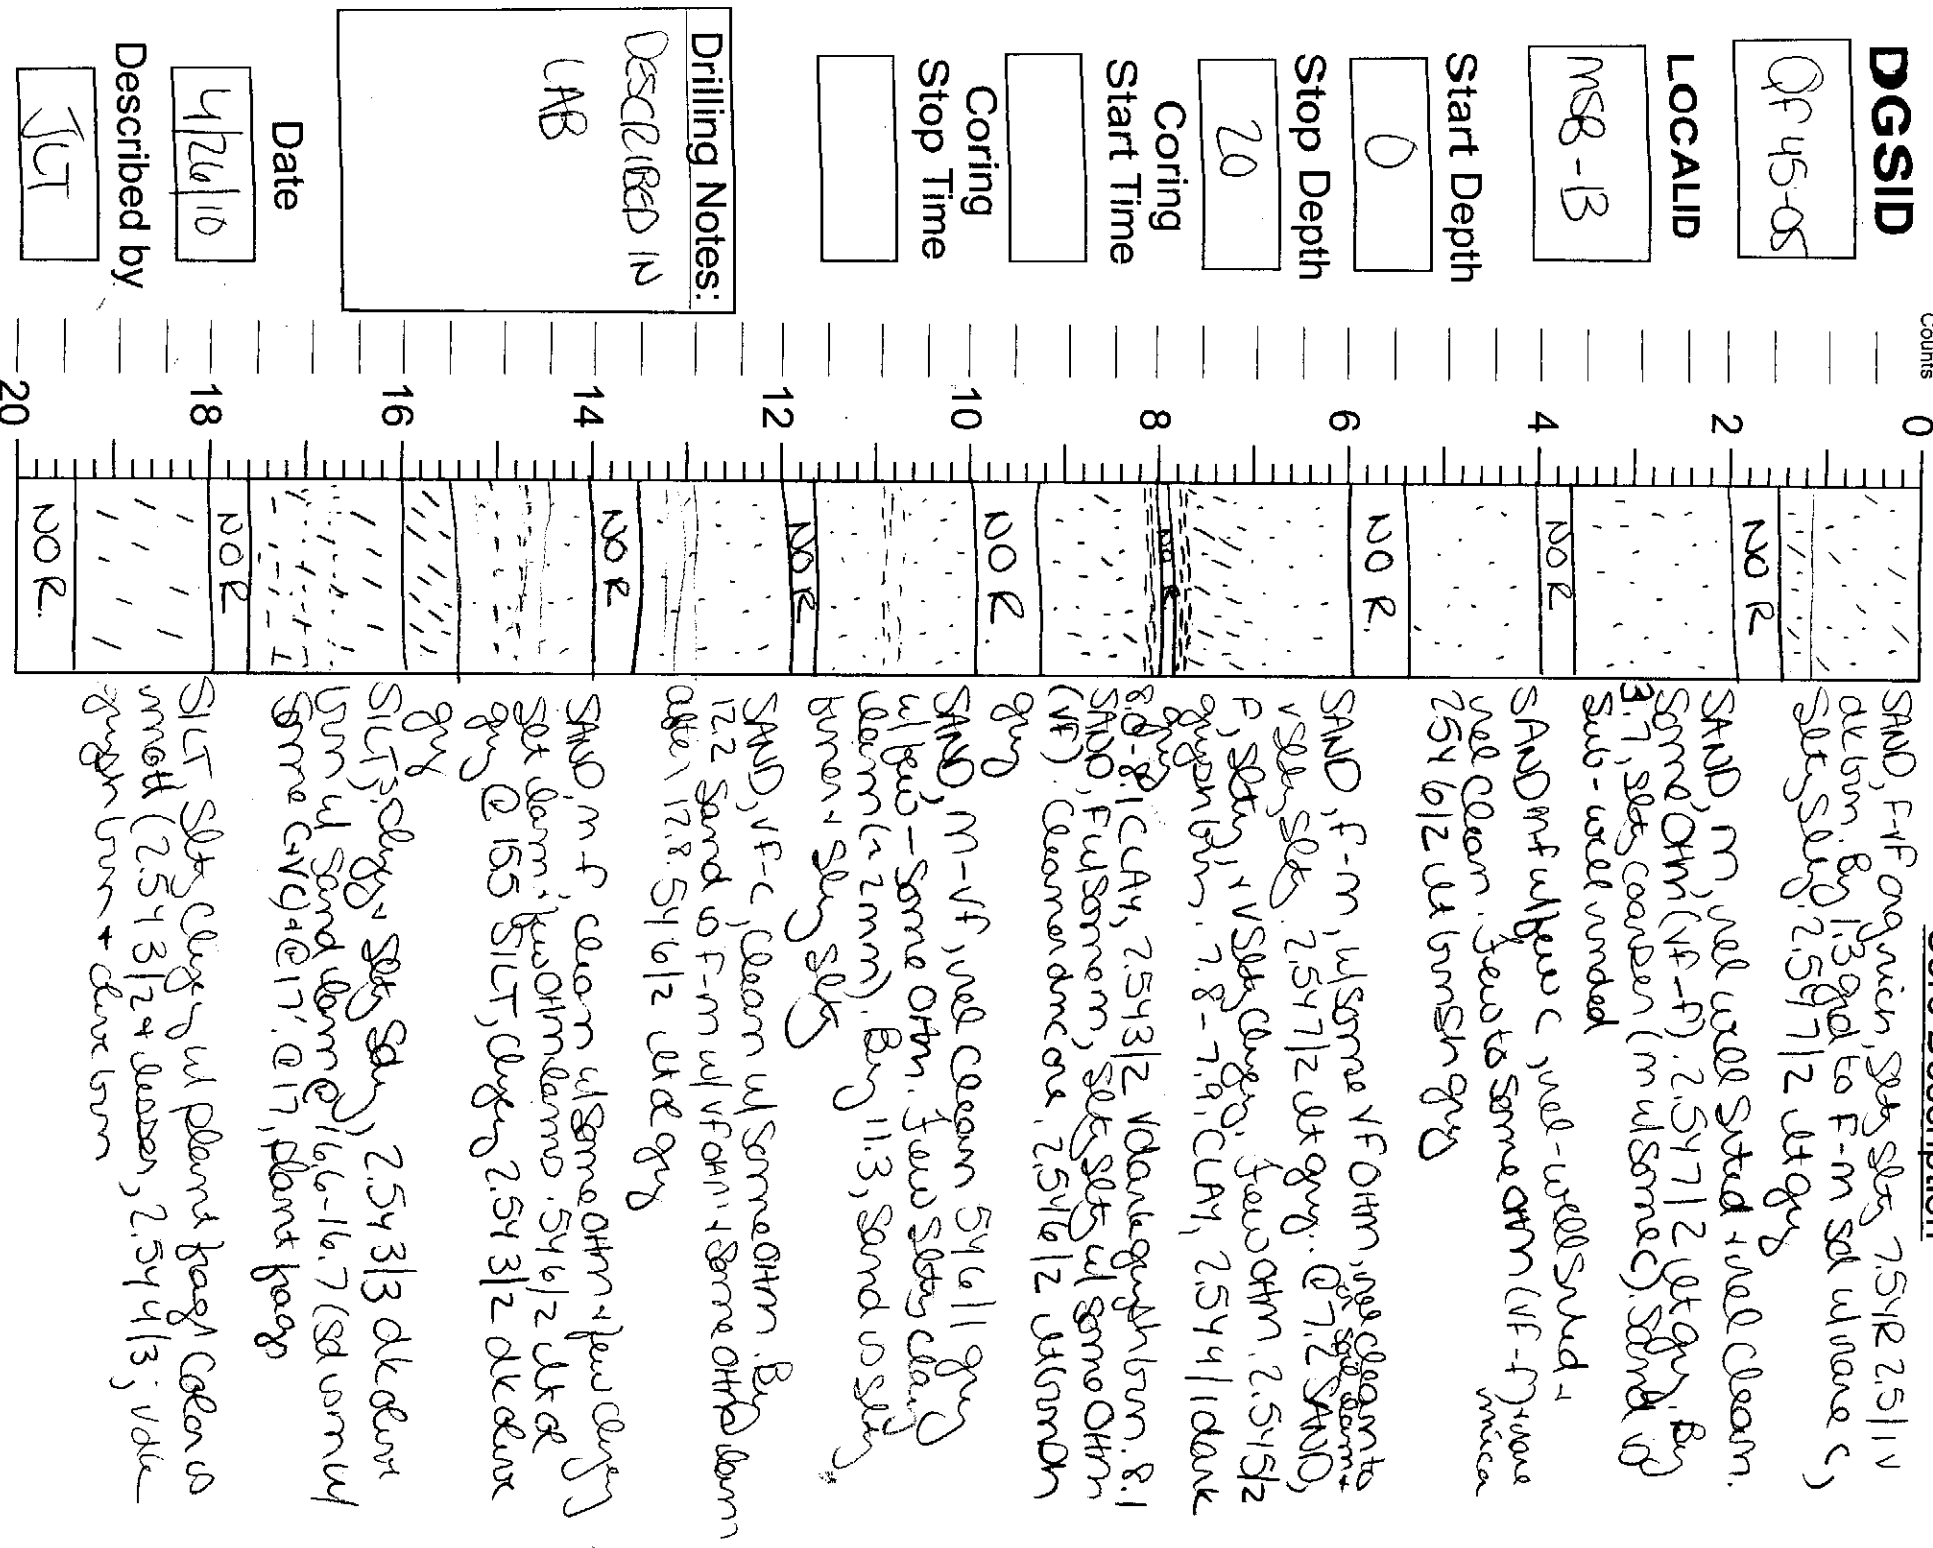 DGSID
QF45-05
LOCALID
MSB-13
Start Depth
0
Stop Depth
20
Coring
Start Time
Coring
Stop Time
Drilling Notes:
DESCRIBED IN
LAB
Date
4/26/10
Described by
JLT
Counts
0
2
4
6
8
10
12
14
16
18
20
NO R
NO R
NO R
NO R
NO R
NO R
NO R
NO R
NO R
Core Description
SAND, F-VF org rich, Slty Slty 7.5YR 2.5/1 v
dk brn. By 1.3 grd to F-m sd w/ rare c,
Slty Slty 2.5Y7/2 lt gry
SAND, m, rel well Sorted + rel clean.
Some OHm (vf-f). 2.5Y7/2 lt gry. By
3.7, slty coarser (m w/ some c). Sand is
Sub-well rnded
SAND mf w/ few c, rel-well sorted +
rel clean. few to some OHM (VF-f) + rare
mica
2.5Y6/2 lt brnsh gry
SAND, f-m, w/ some VF OHM, rel clean to
v Slty Slty. 2.5Y7/2 lt gry. @ 7.2 SAND,
F, Slty, + v Slty Clayey. few OHM. 2.5Y5/2
gryshbrn. 7.8-7.9, CLAY, 2.5Y4/1 dark
gry
8.0-8.1 CLAY, 2.5Y3/2 V dark gryshbrn. 8.1
SAND, F w/ some m, Slty Slty w/ some OHm
(VF). Cleaner dmcore. 2.5Y6/2 lt brnsh
gry
SAND, M-VF, rel clean 5Y6/1 gry
w/ few-some OHm. few Slty clay
lam (~2mm). By 11.3, Sand is Sly
finer + Slty Slty
SAND, VF-C, Clean w/ Some OHm. By
12.2 Sand is F-m w/ VF OHM + Some OHM lam
after 12.8. 5Y6/2 lt ol gry
SAND, m-f clean w/ some OHm + few clayey
Slt lam + few OHm lams. 5Y6/2 lt ol
gry @ 15.5 SILT, Clyey 2.5Y3/2 dk olive
gry
SILT, Clyey + Slty Sdy, 2.5Y3/3 dk olive
brn w/ Sand lam @ 16.6-16.7 (sd vom w/
Some C+VC) + @ 17'. @ 17, plant frags
SILT, Slty Clyey w/ plant frags Color is
mott (2.5Y3/2 + lesser, 2.5Y4/3; v dk
gryshbrn + olive brn